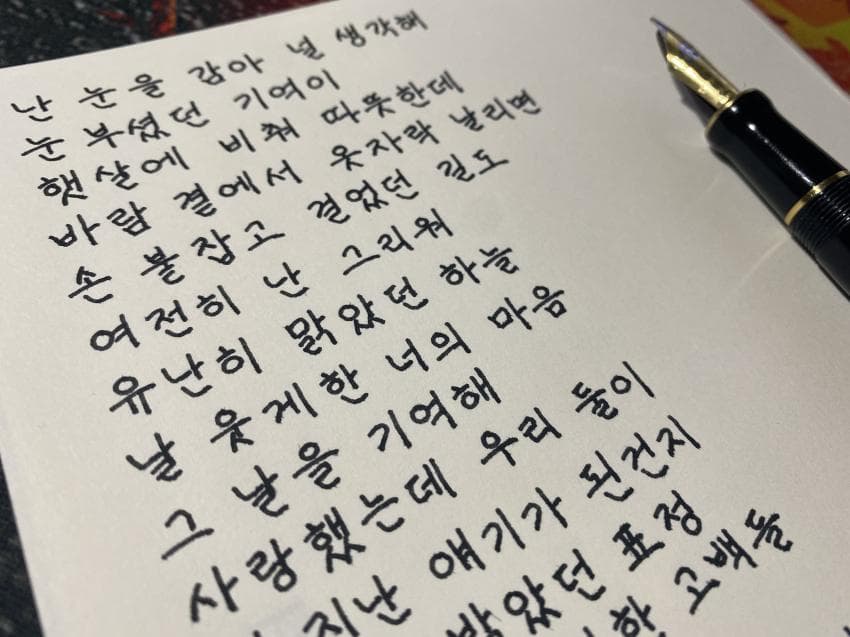 난 눈을 감아 널 생각해
눈 부셨던 기여이
햇살에 비춰 따뜻한데
바람 곁에서 옷자락 날리면
손 붙잡고 걸었던 길도
여전히 난 그리워
유난히 맑았던 하늘
날 웃게한 너의 마음
그 날을 기여해
사랑했는데 우리 둘이
지난 얘기가 된건지
밝았던 표정
고백들